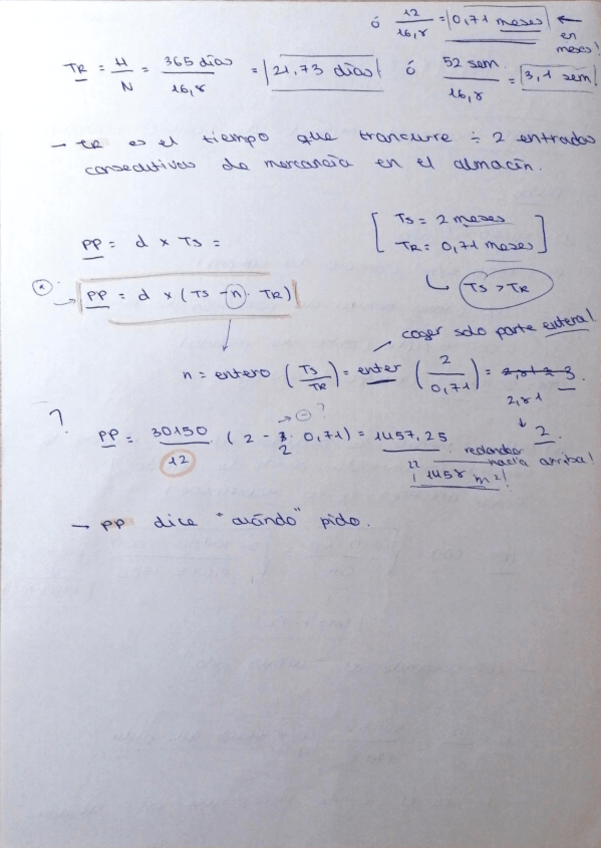 ó 12/16,8 = 0,71 meses ← en meses!
TR = H/N = 365 días/16,8 = 21,73 días ó 52 sem./16,8 = 3,1 sem!
→ TR es el tiempo que transcurre ÷ 2 entradas
consecutivas de mercancía en el almacén.
[ TS = 2 meses
PP = d x TS =
TR = 0,71 meses ]
↳ TS > TR
* → PP = d x (TS - n · TR)
coger solo parte entera!
n = entero (TS/TR) = enter (2/0,71) = 2,81 ≈ 3
2,81
↓
2
? PP = 30150/12 (2 - 3 · 0,71) = 1457,25
→ ⊖ ?
2
redondear hacia arriba!
1458 m²!
→ PP dice "cuándo" pido.